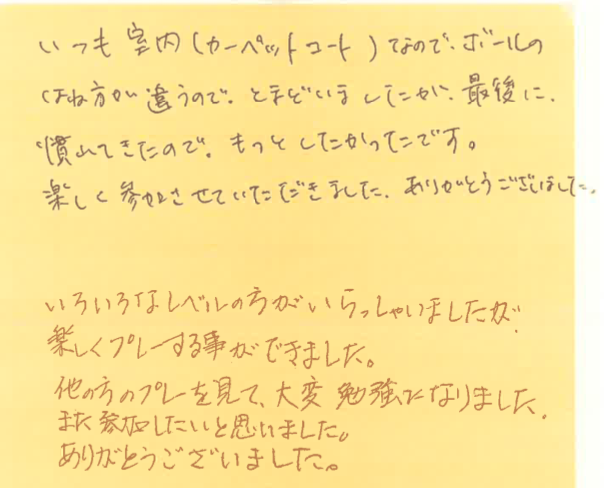 いつも室内(カーペットコート)なので、ボールの
はね方が違うので、とまどいましたが、最後に、
慣れてきたので、もっとしたかったです。
楽しく参加させていただきました。ありがとうございました。
いろいろなレベルの方がいらっしゃいましたが、
楽しくプレーする事ができました。
他の方のプレーを見て、大変勉強になりました。
また参加したいと思いました。
ありがとうございました。